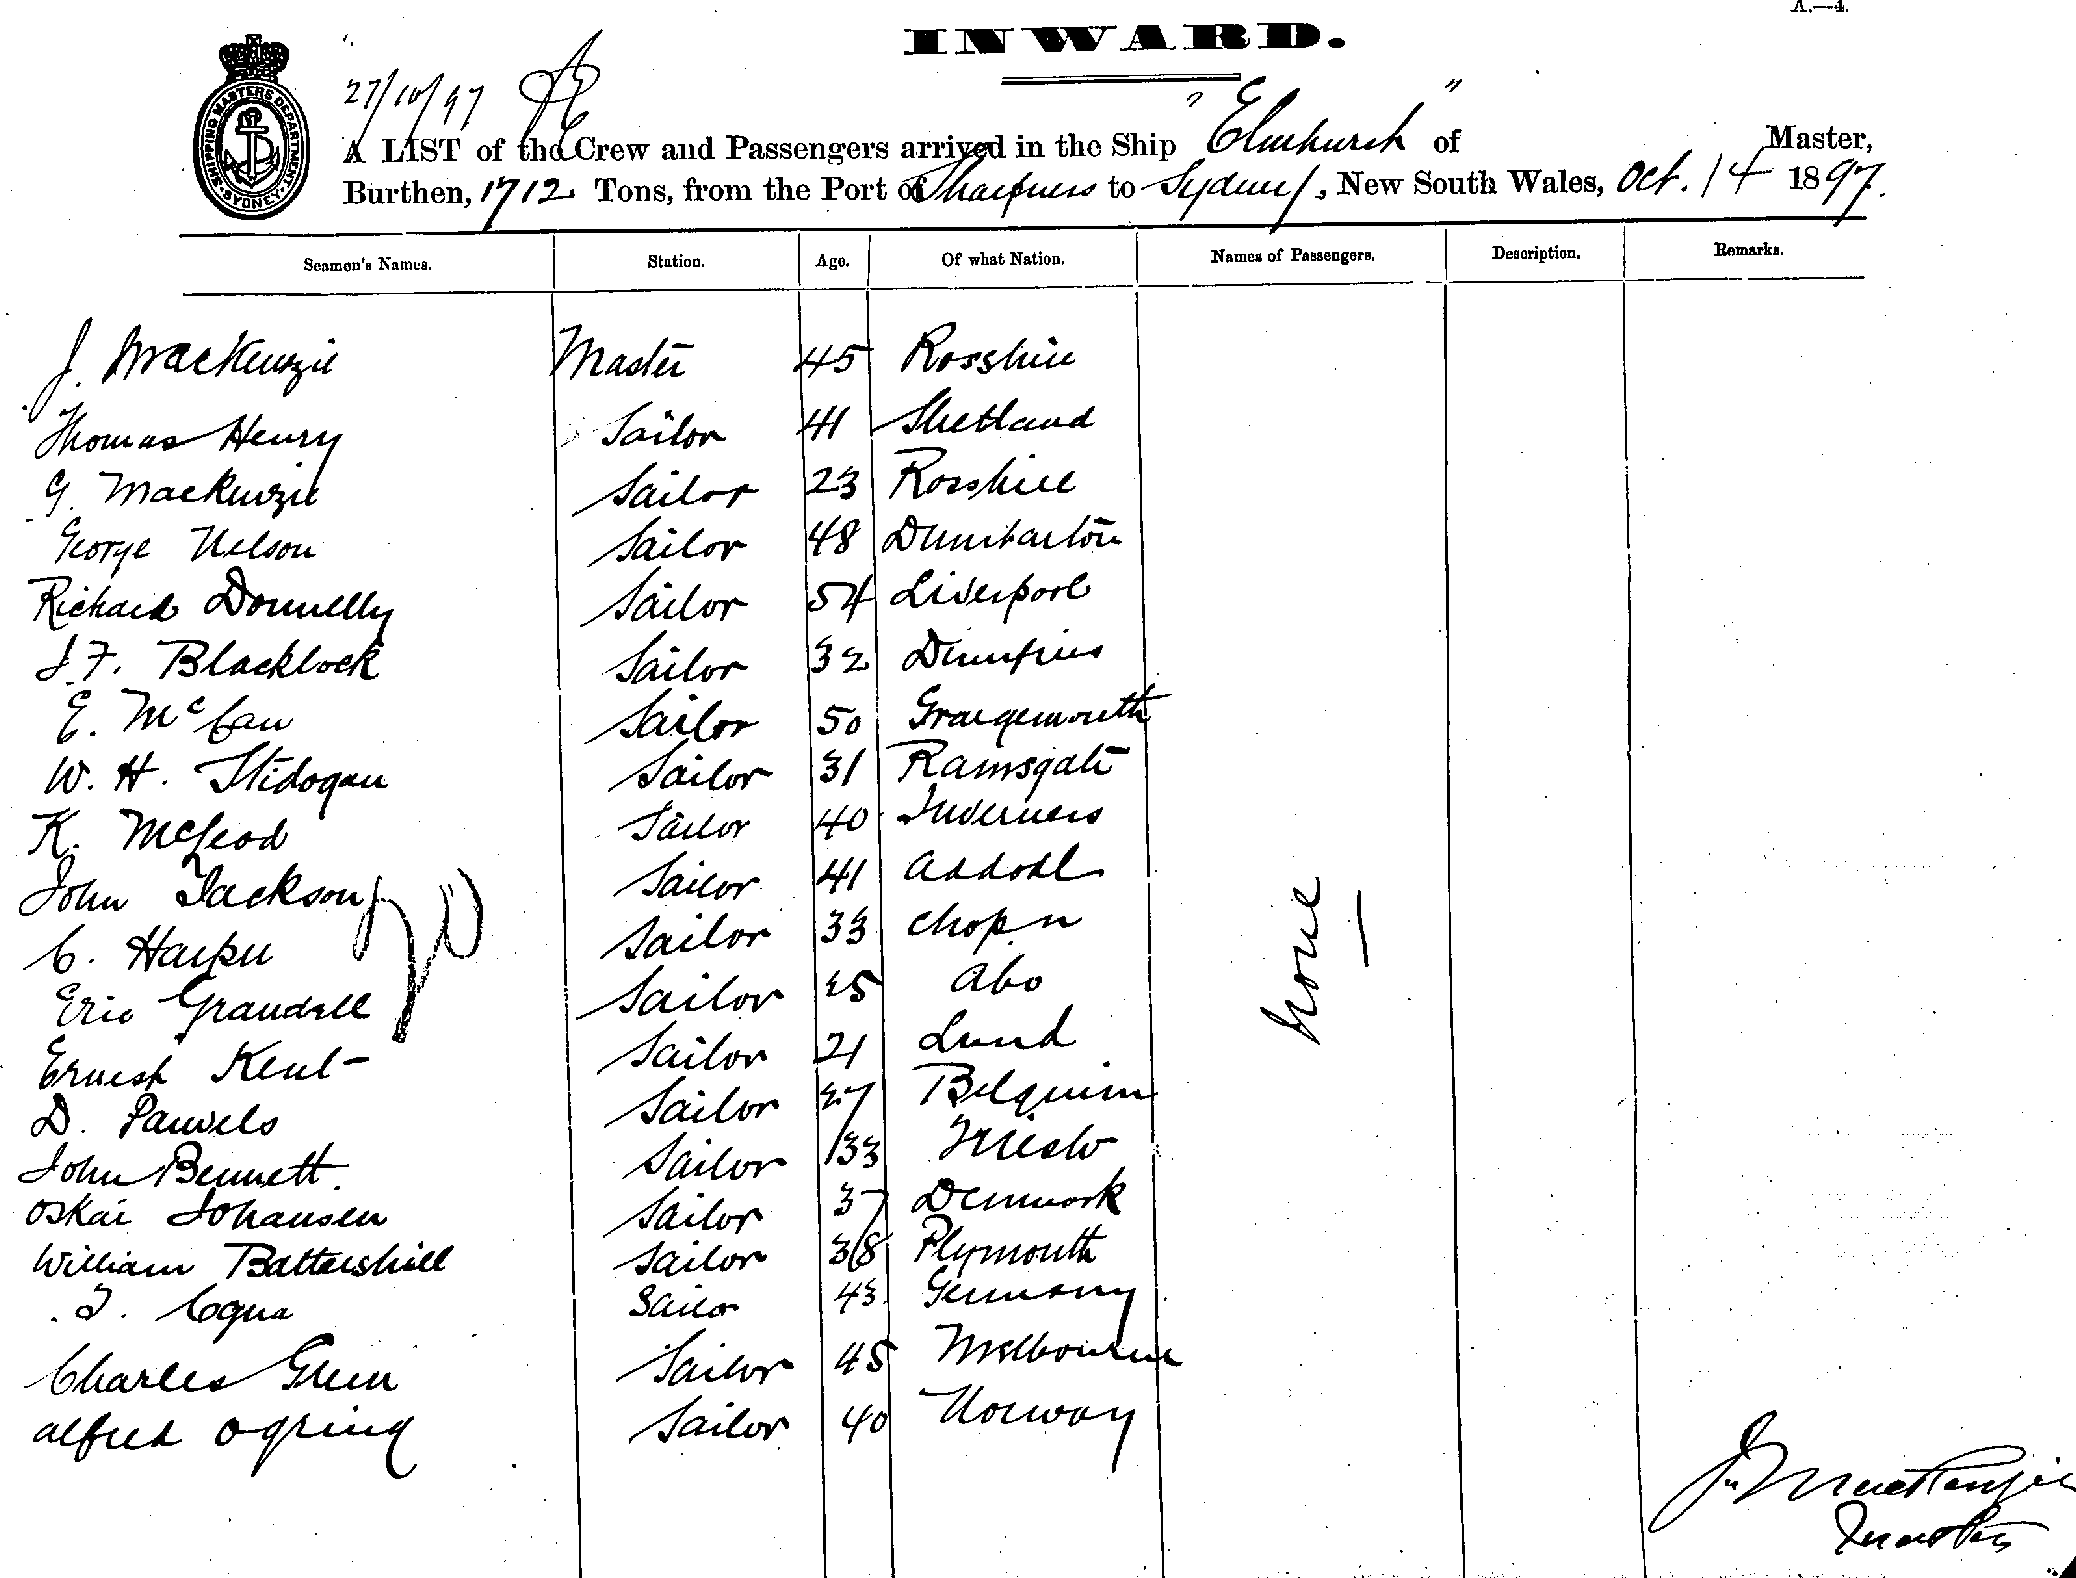 A.—4.
INWARD.
27/10/97
SHIPPING MASTERS DEPARTMENT SYDNEY
A LIST of the Crew and Passengers arrived in the Ship "Elmhurst" of Master,
Burthen, 1712 Tons, from the Port of Sharpness to Sydney, New South Wales, Oct. 14 1897.
Seamen's Names. Station. Age. Of what Nation. Names of Passengers. Description. Remarks.
J. MacKenzie Master 45 Rosshire
Thomas Henry Sailor 41 Shetland
G. MacKenzie Sailor 23 Rosshire
George Nelson Sailor 48 Dumbarton
Richard Donnelly Sailor 54 Liverpool
J. F. Blacklock Sailor 32 Dumfries
E. McCan Sailor 50 Grangemouth
W. H. Stidogan Sailor 31 Ramsgate
K. McLeod Sailor 40 Inverness
John Jackson Sailor 41
C. Harper Sailor 33
Eric Grandell Sailor 25 Abo
Ernest Kent Sailor 21 Lund
D. Pauwels Sailor 27 Belguim
John Bennett. Sailor 33
Oskar Johansen Sailor 37 Denmark
William Battershill Sailor 38 Plymouth
Sailor 43 Germany
Charles Green Sailor 45 Melbourne
Alfred Sailor 40 Norway
None
J. MacKenzie
Master